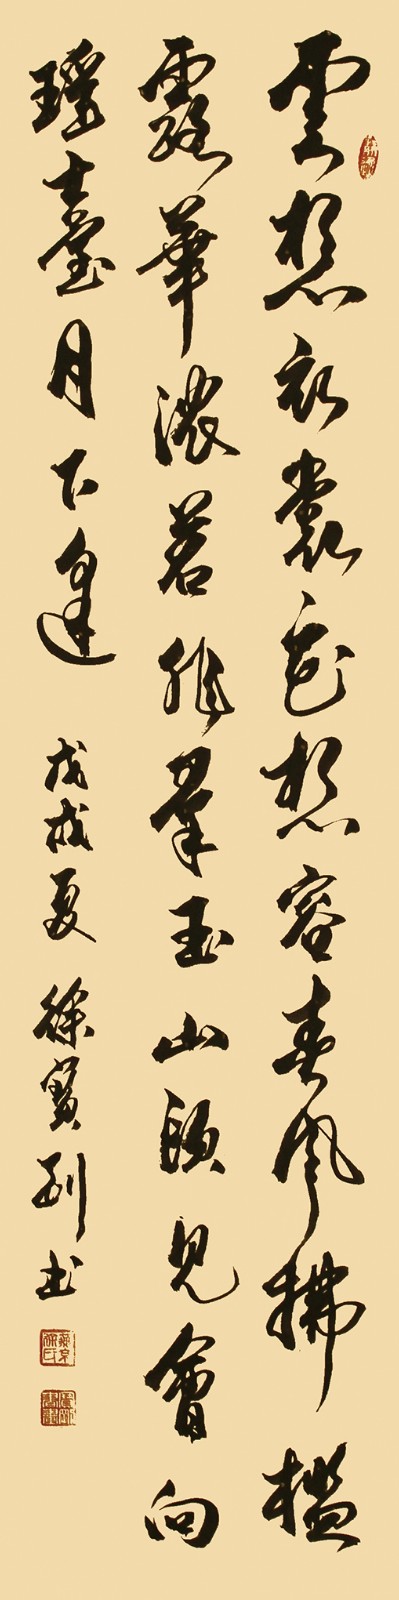 雲想衣裳花想容春風拂檻
露華濃若非群玉山頭見會向
瑤臺月下逢
戊戌夏徐寶列書